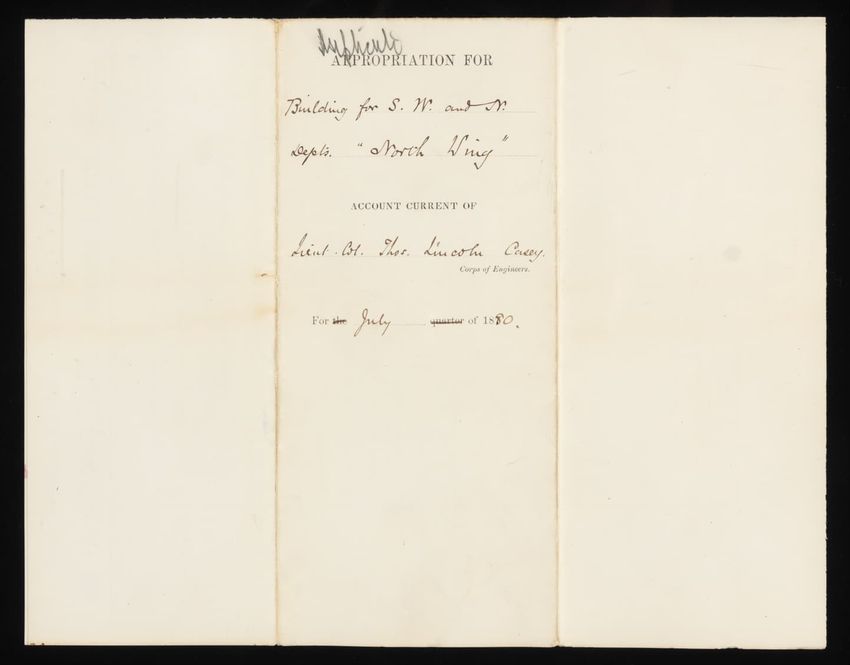 Duplicate
APPROPRIATION FOR
Building for S. W. and N.
Depts. "North Wing"
ACCOUNT CURRENT OF
Lieut. Col. Thos. Lincoln Casey,
Corps of Engineers.
For the July quarter of 1880.